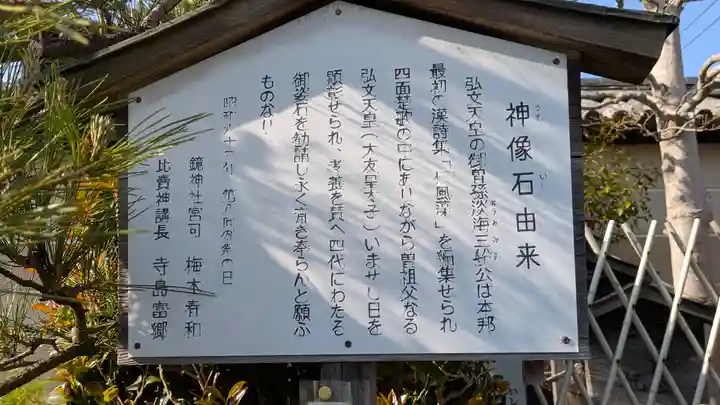 神像石由来
弘文天皇の御曽孫淡海三船公は本邦
最初の漢詩集「懐風藻」を編集せられ
四面楚歌の中にあいながら曽祖父なる
弘文天皇（大友皇子）いませし日を
顕彰せられ、考養を質へ四代にわたる
御姿石を勧請し永く斎き奉らんと願ふ
ものない
昭和 の日
鏡神社宮司 梅本春和
比売神講長 寺島富郷